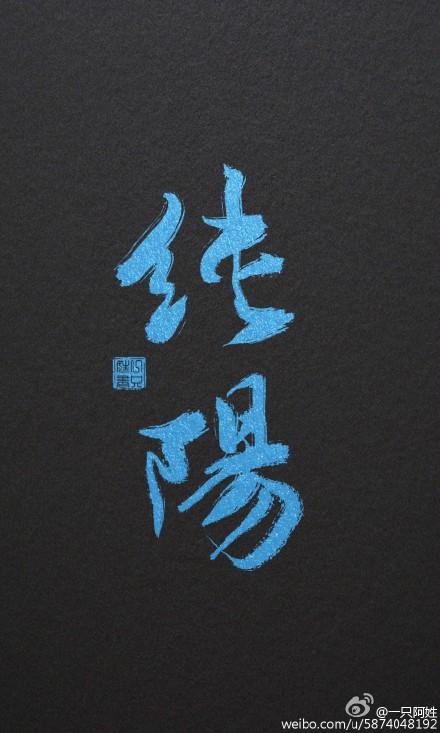 纯陽
@一只阿姓
weibo.com/u/5874048192